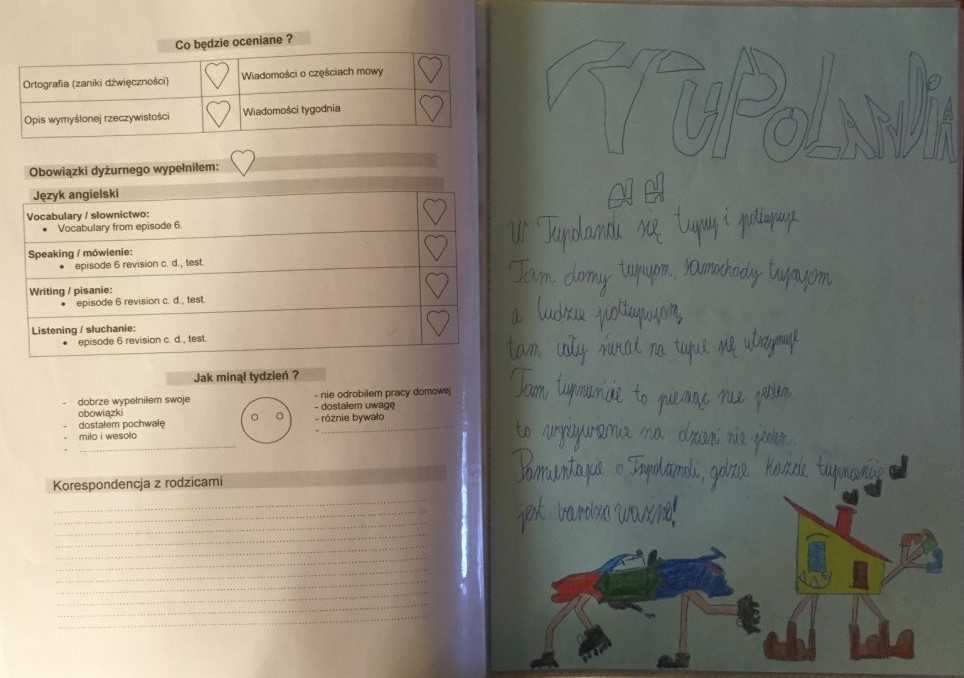 Co będzie oceniane ?
Ortografia (zaniki dźwięczności)
Wiadomości o częściach mowy
Opis wymyślonej rzeczywistości
Wiadomości tygodnia
Obowiązki dyżurnego wypełniłem:
Język angielski
Vocabulary / słownictwo:
• Vocabulary from episode 6.
Speaking / mówienie:
• episode 6 revision c. d., test.
Writing / pisanie:
• episode 6 revision c. d., test.
Listening / słuchanie:
• episode 6 revision c. d., test.
Jak minął tydzień ?
- dobrze wypełniłem swoje
obowiązki
- dostałem pochwałę
- miło i wesoło
-
- nie odrobiłem pracy domowej
- dostałem uwagę
- różnie bywało
-
Korespondencja z rodzicami
TUPOLANDIA
W Tupolandi się tupuj i potupuje
Tam domy tupujom, samochody tupajom
a ludzie potupujom,
tam cały świat na tupie się utrzymuje
Tam tupnięcie to pieniąc nie jeden
to wyzywienie na dzień nie jeden.
Pamientajcie o Tupolandi, gdzie każde tupnięcie
jest bardzo ważne!